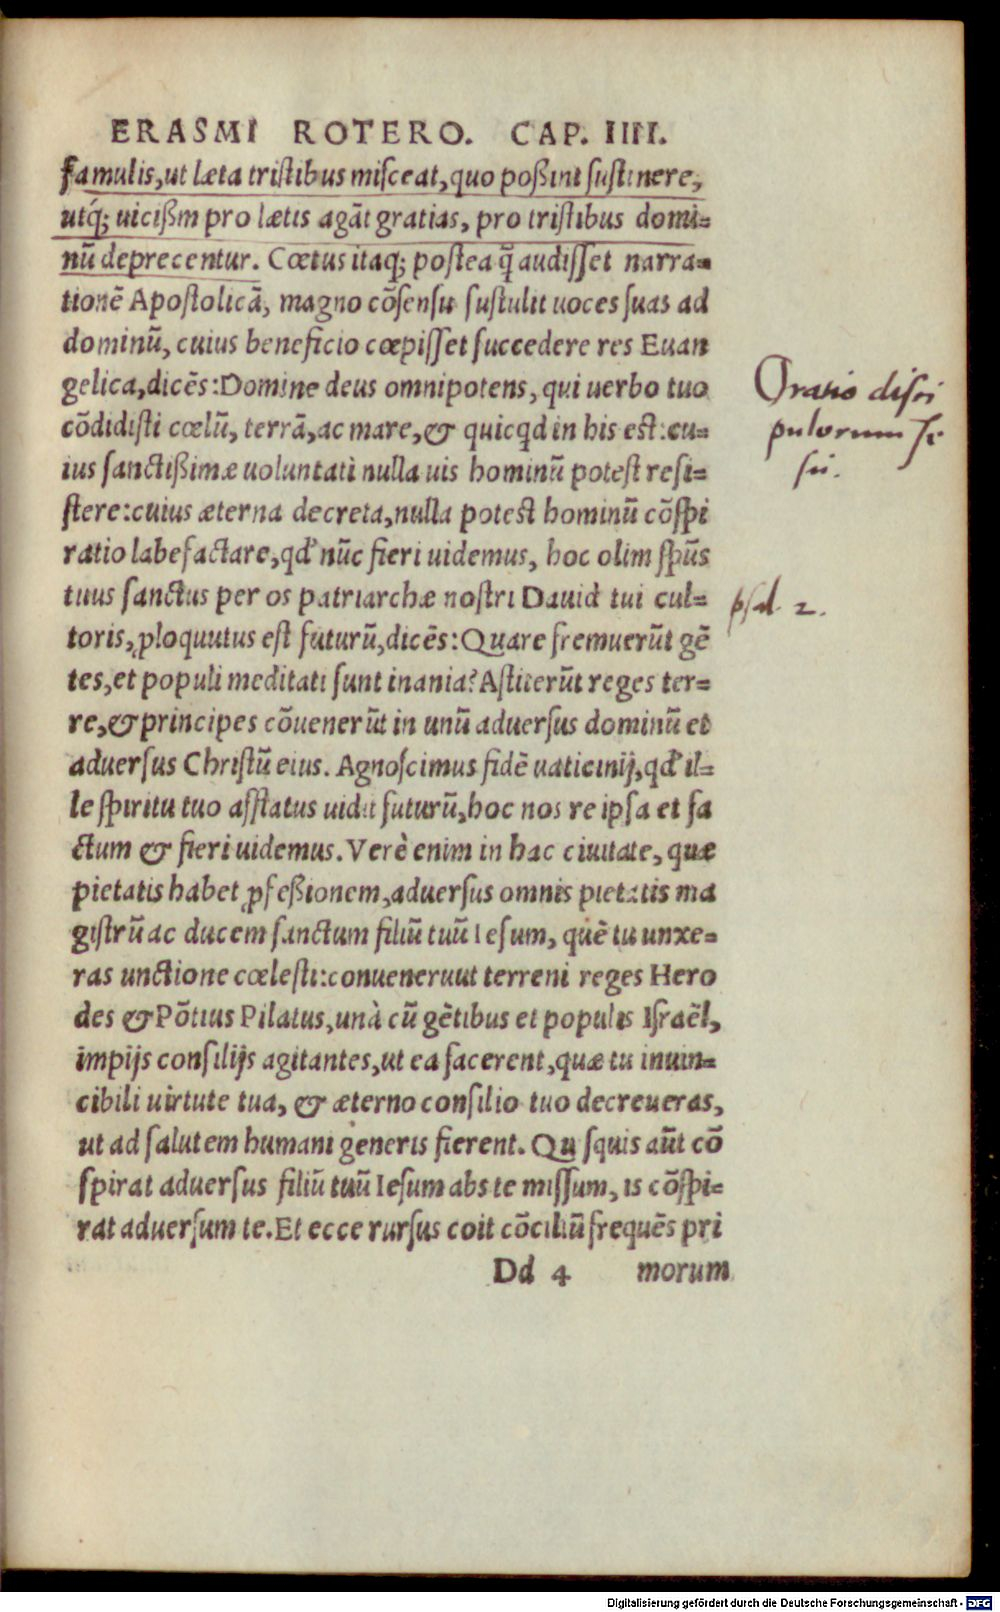 ERASMI ROTERO. CAP. IIII.
famulis, ut læta tristibus misceat, quo poßint sustinere,
utq́; uicißm pro lætis agāt gratias, pro tristibus domi=
nū deprecentur. Cœtus itaq; postea q̄ audisset narra=
tionē Apostolicā, magno cōsensu sustulit uoces suas ad
dominū, cuius beneficio cœpisset succedere res Euan
gelica, dicēs: Domine deus omnipotens, qui uerbo tuo
cōdidisti cœlū, terrā, ac mare, & quicqd in his est: cu=
ius sanctißimæ uoluntati nulla uis hominū potest resi=
stere: cuius æterna decreta, nulla potest hominū cōspi
ratio labefactare, qd' nūc fieri uidemus, hoc olim spūs
tuus sanctus per os patriarchæ nostri Dauid tui cul=
toris, ꝓloquutus est futurū, dicēs: Quare fremuerūt gē
tes, et populi meditati sunt inania? Astiterūt reges ter=
re, & principes cōuenerūt in unū aduersus dominū et
aduersus Christū eius. Agnoscimus fidē uaticinij, qd' il=
le spiritu tuo afflatus uidit futurū, hoc nos re ipsa et fa
ctum & fieri uidemus. Verè enim in hac ciuitate, quæ
pietatis habet ꝓfeßionem, aduersus omnis pietatis ma
gistrū ac ducem sanctum filiū tuū Iesum, quē tu unxe=
ras unctione cœlesti: conueneruut terreni reges Hero
des & Pōtius Pilatus, unà cū gētibus et populis Israēl,
impijs consilijs agitantes, ut ea facerent, quæ tu inuin=
cibili uirtute tua, & æterno consilio tuo decreueras,
ut ad salutem humani generis fierent. Qu squis aūt cō
spirat aduersus filiū tuū Iesum abs te missum, is cōspi=
rat aduersum te. Et ecce rursus coit cōciliū frequēs pri
Dd 4 morum
Oratio disci
pulorum Je
su.
psal. 2.
Digitalisierung gefördert durch die Deutsche Forschungsgemeinschaft - DFG